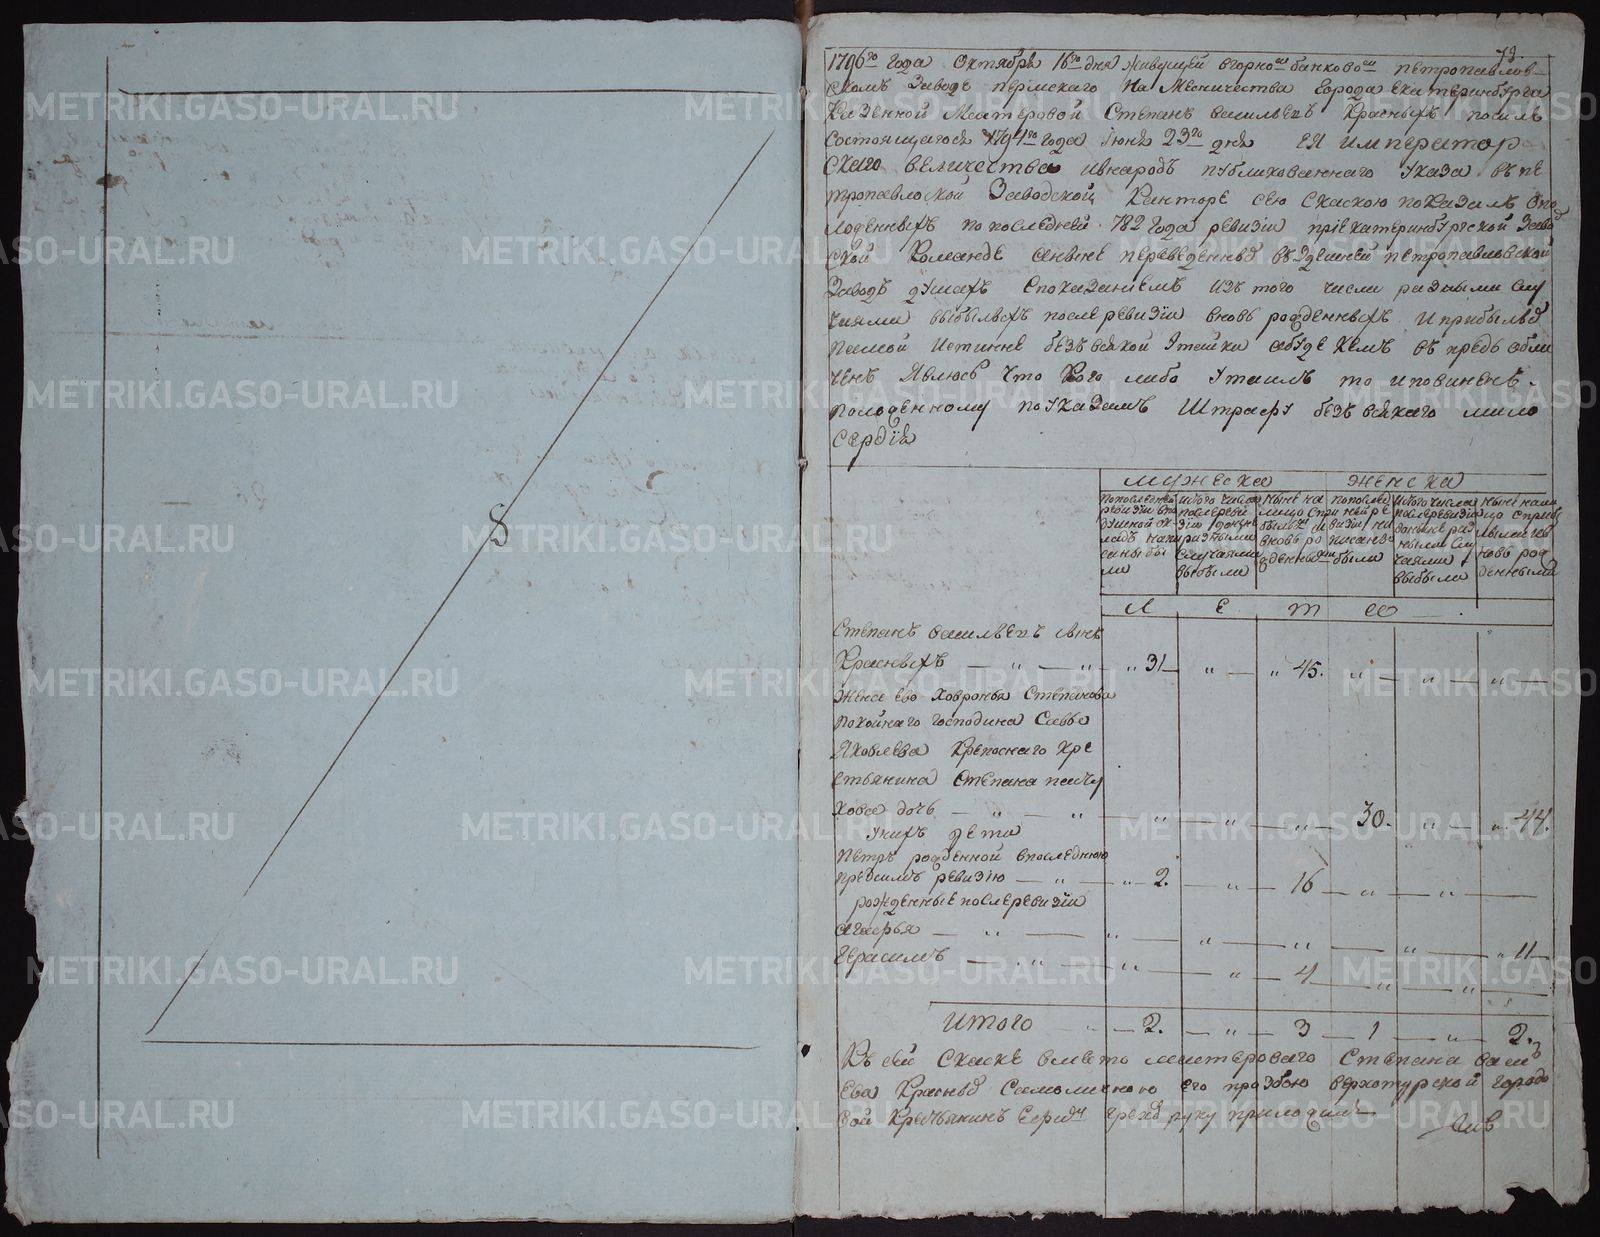 79.
1796го года Октября 16го дня живущей в горно банковом петропавлов
скомъ Заводе пермскаго На Месничества города екатеринбурга
Казенной Мастеровой Степанъ васильевъ Красныхъ после
состоящагося 1794го года Июня 23го дня ЕЯ император
скаго величества и внародъ публикованнаго указа въ пе
тропавлоской Заводской Канторе сею скаскою показалъ о по
ложенныхъ по последней 782 года ревизiи при екатеринбургской Заво
ской Команде а ныне переведенныя въ здешней петропавловской
Заводъ душахъ с показанiемъ изъ того числа разными слу
чаями выбылыхъ после ревизiи вновь рожденныхъ и прибылыя
самой истинне безъ всякой утайки а буде кемъ въ предь обли
ченъ Явлюсь что кого либо утаилъ то и повиненъ
положенному по указамъ Штрафу безъ всякаго мило
сердiя
мужеска женска
По последней ревизiи в по душной окладъ написаны были
Из того числа после ревизiи до ныне разными случаями выбыли
Ныне на лицо с прибылыми и вновь рожденными
По последней ревизiи написано были
Из того числа после ревизiи до ныне разными случаями выбыли
Ныне на лицо с прибылыми и вновь рожденными
Л Е т а
Степанъ васильевъ сынъ
Красныхъ — „ — „ „ 31 „ „ 45. „ „ „
Жена ево Ховронья Степанова
покойнаго господина Савы
Яковлева Крепоснаго кре
стьянина Степана
дочь — „ — „ „ „ „ 30. „ „ 44.
У нихъ дети
Петръ рожденной в последнюю
ревизiю — „ „ 2. „ 16 „ „
рожденные после ревизiи
агафья — „ „ „ „ „ „ 11
Герасимъ — „ „ „ 4 „ „
Итого „ 2. „ 3 1 „ 2.
Къ сей скаске вместо мастероваго Степана василь
ева Красныя Самоличною его прозбою верхотурской городо
вой руку приложилъ